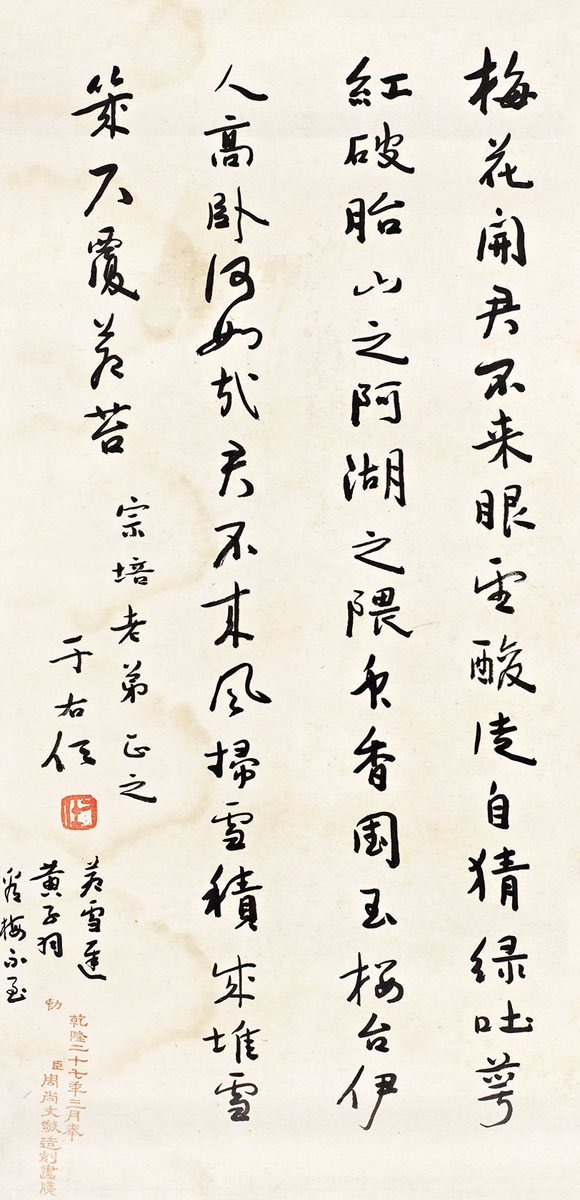 梅花開君不来眼望酸徒自猜緑吐萼
紅破胎山之阿湖之隈衆香國玉楼台伊
人高卧何如哉君不来風掃雪積成堆雪
幾尺覆蒼苔
宗培老弟正之
于右任
蒼雪遲
黄子羽
看梅不至
乾隆二十七年三月奉
勅
臣周尚文敬造刻畫牋